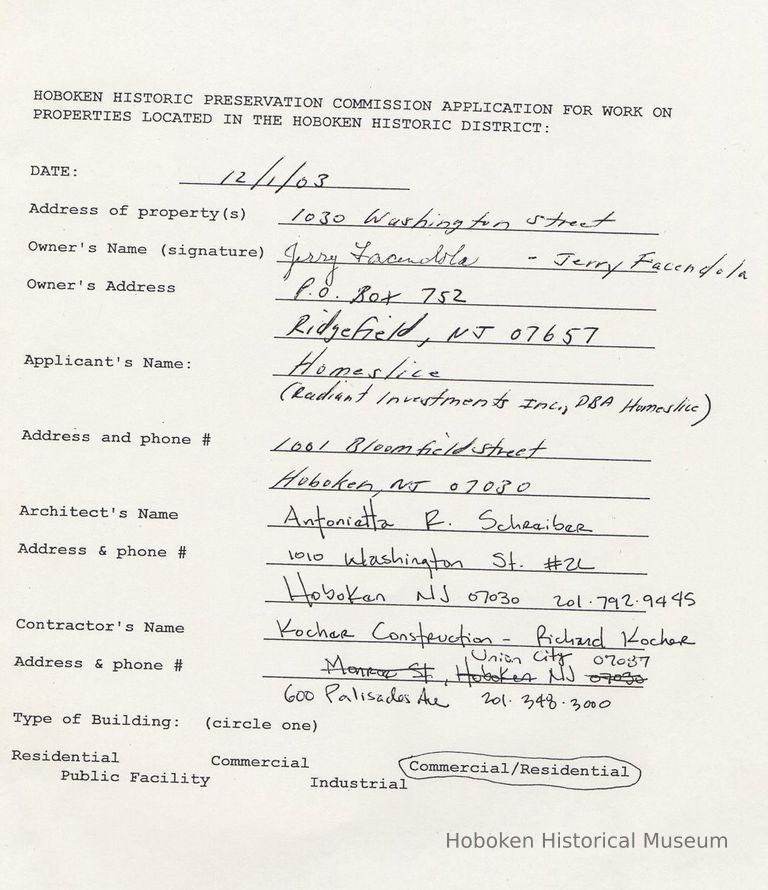 HOBOKEN HISTORIC PRESERVATION COMMISSION APPLICATION FOR WORK ON
PROPERTIES LOCATED IN THE HOBOKEN HISTORIC DISTRICT:
DATE: 12/1/03
Address of property(s) 1030 Washington Street
Owner's Name (signature) Jerry Facendola - Jerry Facendola
Owner's Address P.O. Box 752
Ridgefield, NJ 07657
Applicant's Name: Homeslice
(Radiant Investments Inc., DBA Homeslice)
Address and phone # 1001 Bloomfield Street
Hoboken, NJ 07030
Architect's Name Antonietta R. Schreiber
Address & phone # 1010 Washington St. #2L
Hoboken NJ 07030 201.792.9445
Contractor's Name Kocher Construction - Richard Kocher
Union City 07087
Address & phone # Monroe St, Hoboken NJ 07030
600 Palisades Ave 201.348.3000
Type of Building: (circle one)
Residential Commercial Commercial/Residential
Public Facility Industrial
Hoboken Historical Museum